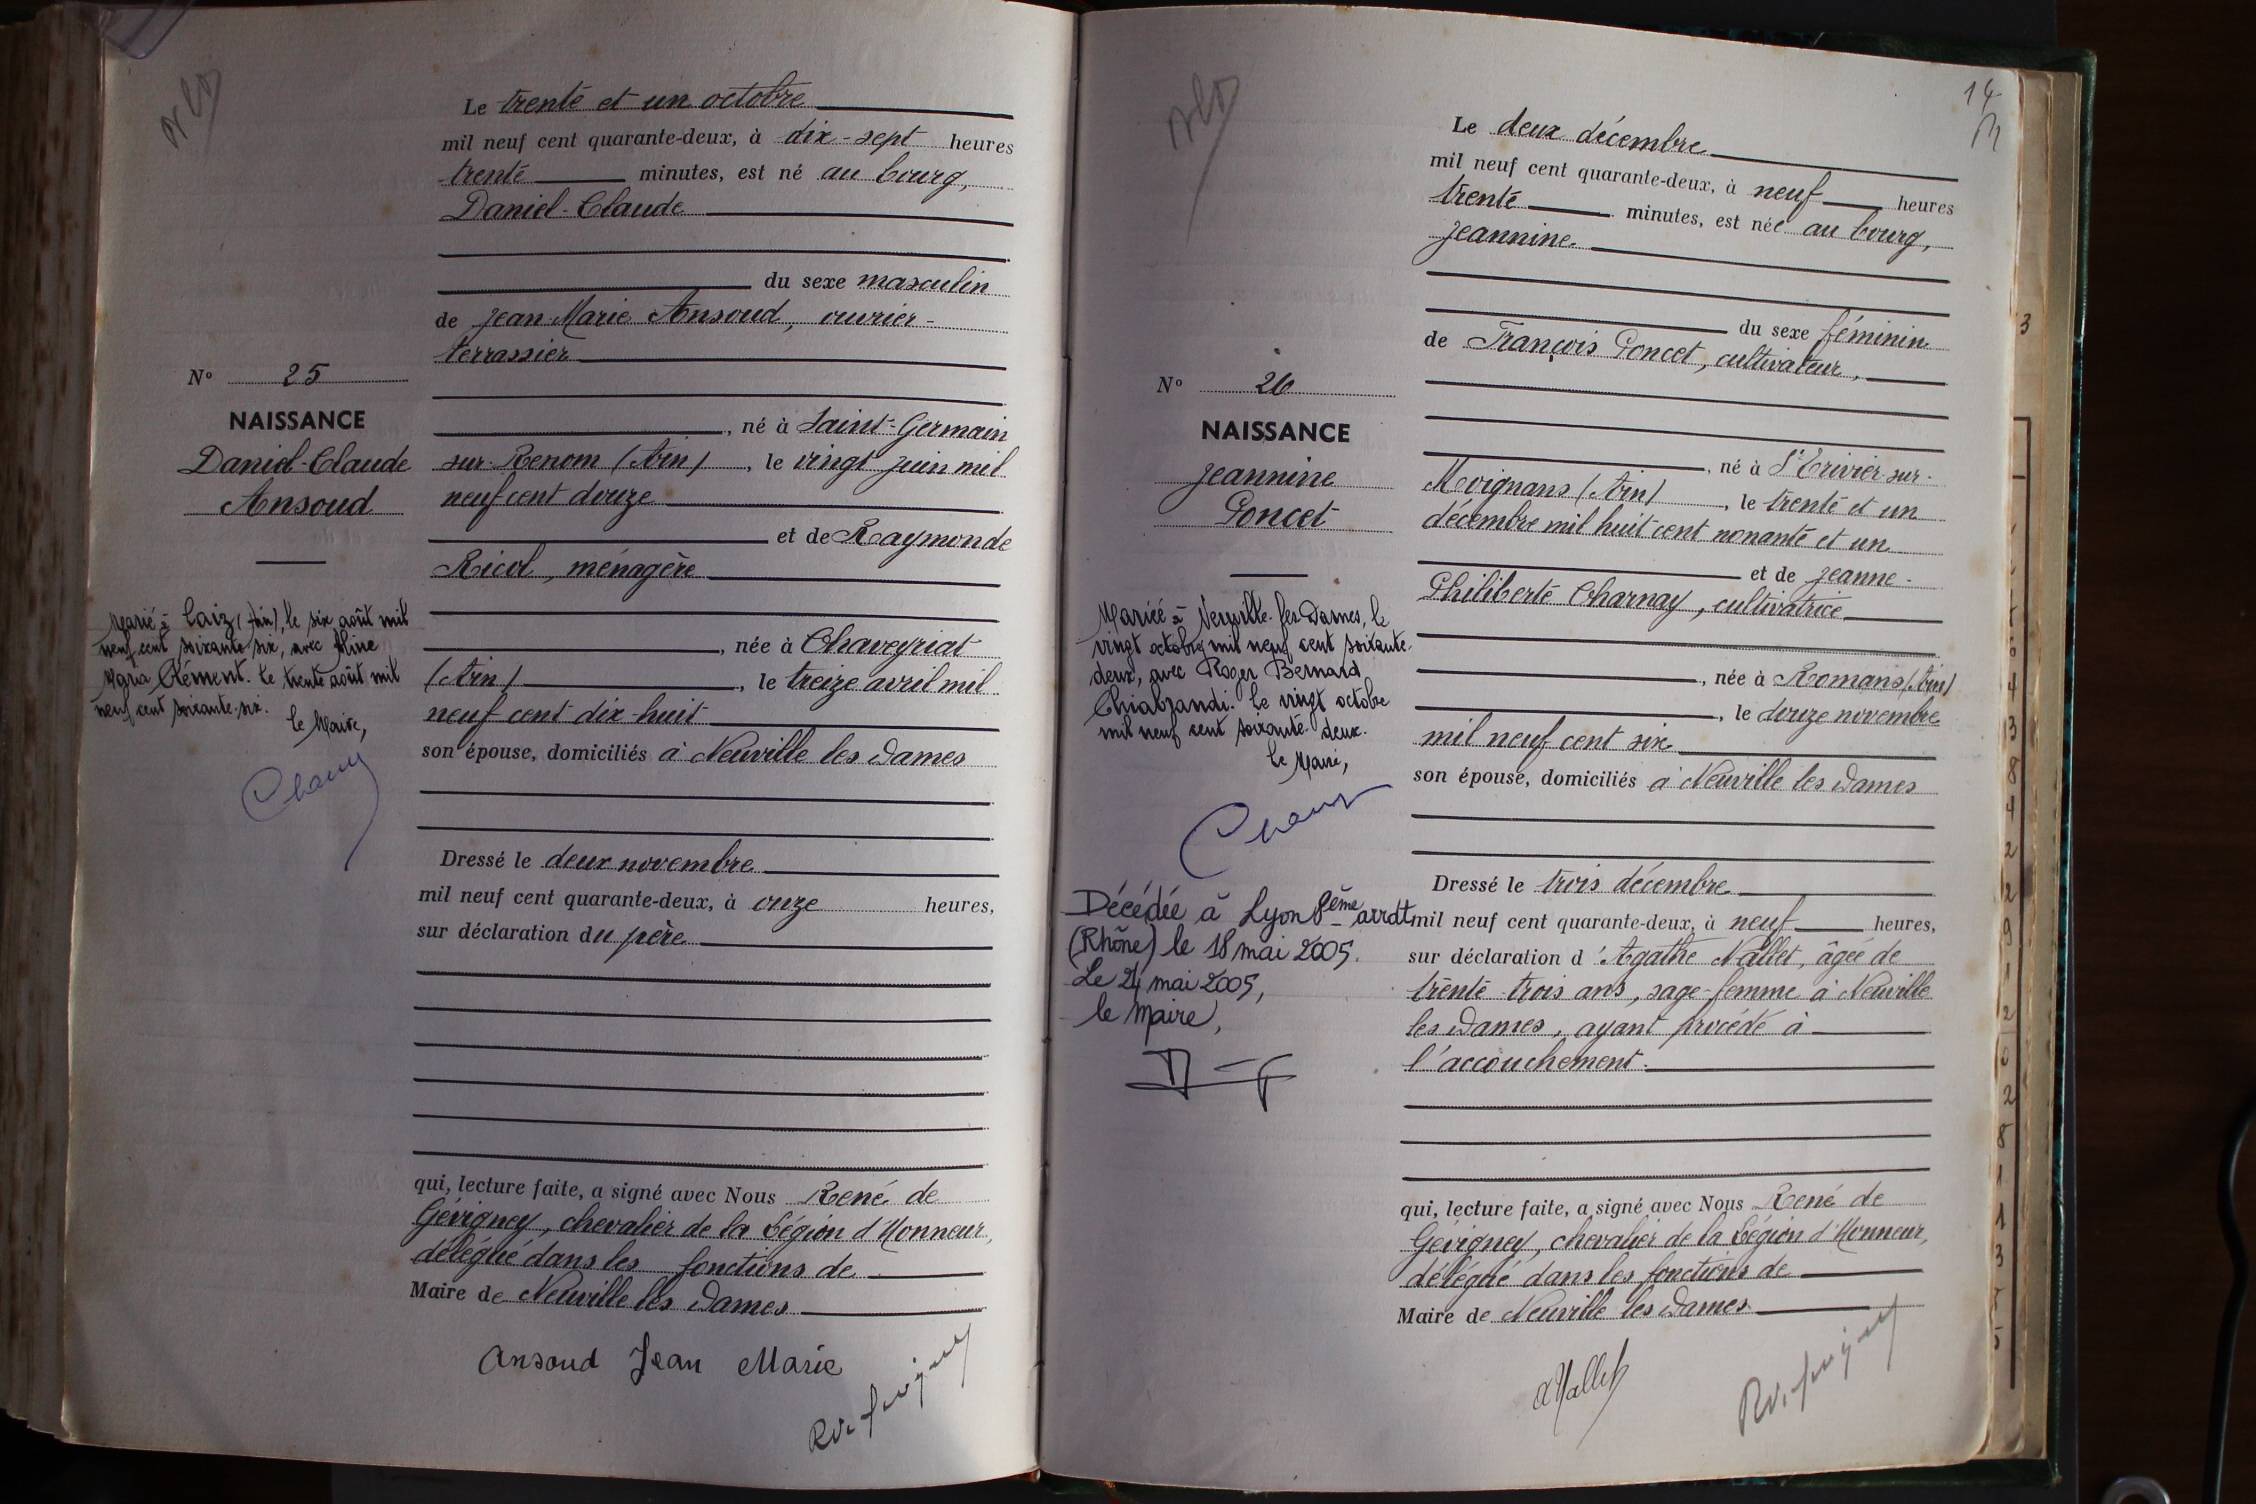 Le trente et un octobre
mil neuf cent quarante-deux, à dix-sept heures
trente minutes, est né au bourg,
Daniel-Claude
du sexe masculin
de Jean Marie Ansoud, ouvrier-
terrassier
N° 25
NAISSANCE
Daniel-Claude
Ansoud
, né à Saint-Germain
sur-Renom (Ain), le vingt juin mil
neuf cent douze
et de Raymonde
Ricol, ménagère
, née à Chaveyriat
(Ain), le treize avril mil
neuf cent dix-huit
son épouse, domiciliés à Neuville les Dames
Marié à Laiz (Ain), le six août mil
neuf cent soixante six, avec Aline
Maria Clément. Le trente août mil
neuf cent soixante-six.
Le Maire,
Dressé le deux novembre
mil neuf cent quarante-deux, à onze heures,
sur déclaration du père
qui, lecture faite, a signé avec Nous René de
Gévigney, chevalier de la Légion d'Honneur,
délégué dans les fonctions de
Maire de Neuville les Dames
Ansoud Jean Marie
14
Le deux décembre
mil neuf cent quarante-deux, à neuf heures
trente minutes, est née au bourg,
Jeannine
du sexe féminin
de François Poncet, cultivateur,
N° 26
NAISSANCE
Jeannine
Poncet
, né à St Trivier-sur-
Moignans (Ain), le trente et un
décembre mil huit cent nonante et un
et de Jeanne-
Philiberte Charnay, cultivatrice
, née à Romans (Ain)
, le douze novembre
mil neuf cent six
son épouse, domiciliés à Neuville les Dames
Mariée à Neuville-les-Dames, le
vingt octobre mil neuf cent soixante-
deux, avec Roger Bernard
Chiabrandi. Le vingt octobre
mil neuf cent soixante-deux.
Le Maire,
Décédée à Lyon 8ème arrdt
(Rhône) le 18 mai 2005.
Le 24 mai 2005,
le Maire,
Dressé le trois décembre
mil neuf cent quarante-deux, à neuf heures,
sur déclaration d'Agathe Nallet, âgée de
trente-trois ans, sage-femme à Neuville
les Dames, ayant procédé à
l'accouchement.
qui, lecture faite, a signé avec Nous René de
Gévigney, chevalier de la Légion d'Honneur,
délégué dans les fonctions de
Maire de Neuville les Dames
ANallet